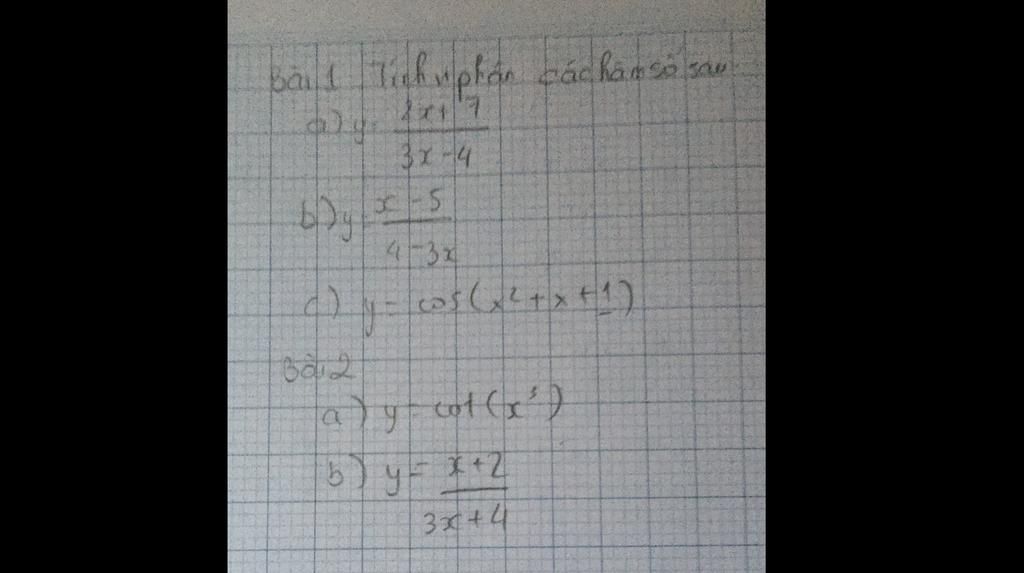 Bài 1 Tính vi phân các hàm số sau
a) y = 2x + 7 / 3x - 4
b) y = x - 5 / 4 - 3x
c) y = cos(x² + x + 1)
Bài 2
a) y = cot(x³)
b) y = x + 2 / 3x + 4